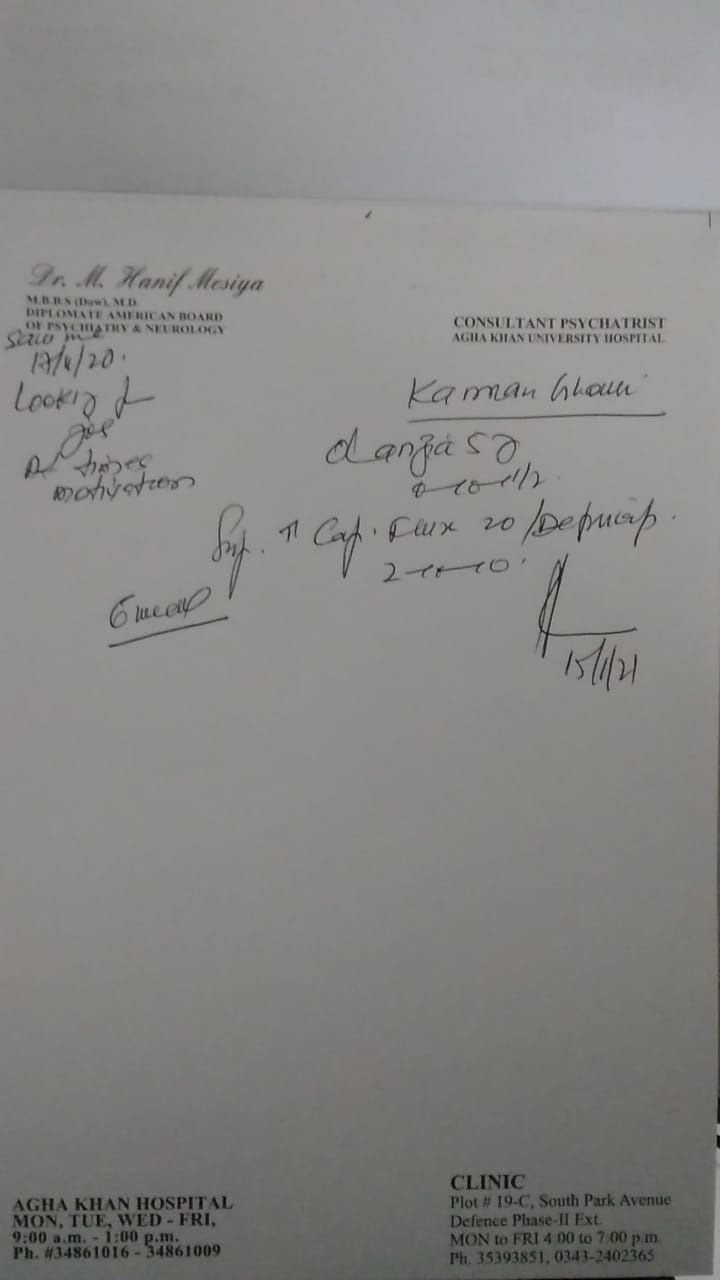 Dr. M. Hanif Mesiya
M.B.B.S (Dow), M.D.
DIPLOMATE AMERICAN BOARD
OF PSYCHIATRY & NEUROLOGY
CONSULTANT PSYCHATRIST
AGHA KHAN UNIVERSITY HOSPITAL
saw me
17/11/20.
Looking f
job
At times
motivation
Kamran
olanzia 5
0-0-1/2
Cap. Flux 20 / Depricap.
2-0-0.
15/1/21
AGHA KHAN HOSPITAL
MON, TUE, WED - FRI,
9:00 a.m. - 1:00 p.m.
Ph. #34861016 - 34861009
CLINIC
Plot # 19-C, South Park Avenue
Defence Phase-II Ext.
MON to FRI 4:00 to 7:00 p.m.
Ph. 35393851, 0343-2402365